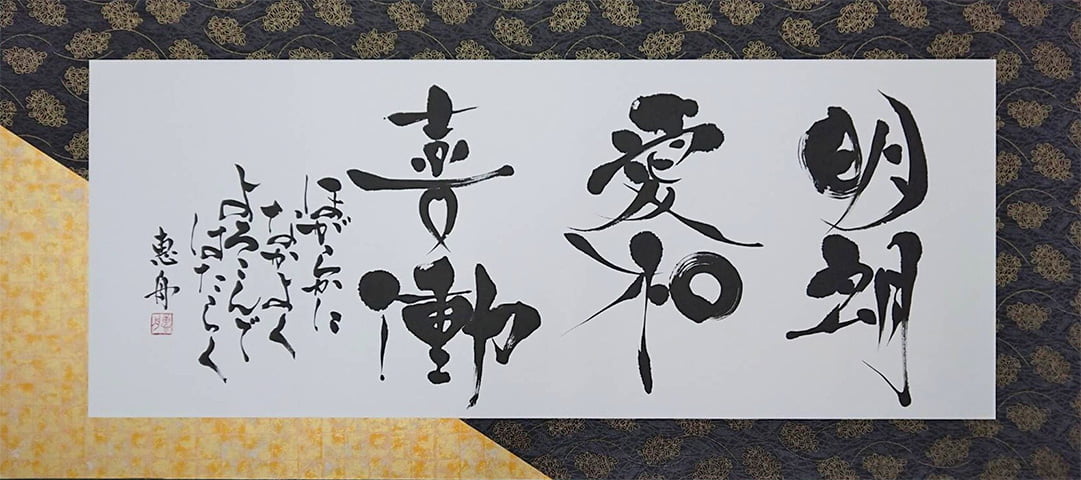 明朗
愛和
喜働
ほがらかに
なかよく
よろこんで
はたらく
恵舟